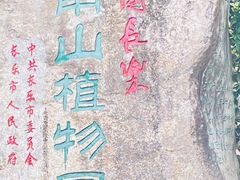 国长乐
南山植物园
中共长乐市委员会
长乐市人民政府